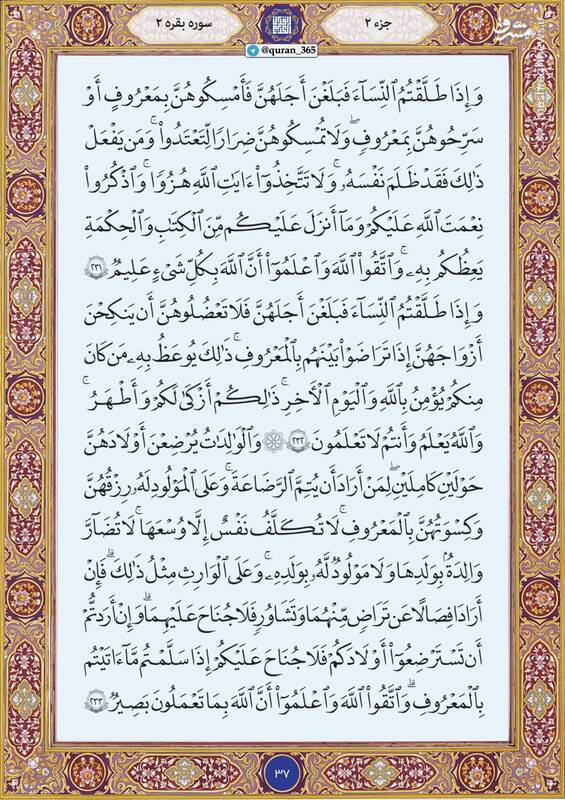 جزء ۲
سوره بقره ۲
@quran_365
مشرق
mashreghnews.ir
وَإِذَا طَلَّقْتُمُ ٱلنِّسَآءَ فَبَلَغْنَ أَجَلَهُنَّ فَأَمْسِكُوهُنَّ بِمَعْرُوفٍ أَوْ
سَرِّحُوهُنَّ بِمَعْرُوفٍ ۖ وَلَا تُمْسِكُوهُنَّ ضِرَارًا لِّتَعْتَدُوا۟ ۚ وَمَن يَفْعَلْ
ذَٰلِكَ فَقَدْ ظَلَمَ نَفْسَهُۥ ۚ وَلَا تَتَّخِذُوٓا۟ ءَايَٰتِ ٱللَّهِ هُزُوًا ۚ وَٱذْكُرُوا۟
نِعْمَتَ ٱللَّهِ عَلَيْكُمْ وَمَآ أَنزَلَ عَلَيْكُم مِّنَ ٱلْكِتَٰبِ وَٱلْحِكْمَةِ
يَعِظُكُم بِهِۦ ۚ وَٱتَّقُوا۟ ٱللَّهَ وَٱعْلَمُوٓا۟ أَنَّ ٱللَّهَ بِكُلِّ شَىْءٍ عَلِيمٌ ۝٢٣١
وَإِذَا طَلَّقْتُمُ ٱلنِّسَآءَ فَبَلَغْنَ أَجَلَهُنَّ فَلَا تَعْضُلُوهُنَّ أَن يَنكِحْنَ
أَزْوَٰجَهُنَّ إِذَا تَرَٰضَوْا۟ بَيْنَهُم بِٱلْمَعْرُوفِ ۗ ذَٰلِكَ يُوعَظُ بِهِۦ مَن كَانَ
مِنكُمْ يُؤْمِنُ بِٱللَّهِ وَٱلْيَوْمِ ٱلْءَاخِرِ ۗ ذَٰلِكُمْ أَزْكَىٰ لَكُمْ وَأَطْهَرُ ۗ
وَٱللَّهُ يَعْلَمُ وَأَنتُمْ لَا تَعْلَمُونَ ۝٢٣٢ ۞ وَٱلْوَٰلِدَٰتُ يُرْضِعْنَ أَوْلَٰدَهُنَّ
حَوْلَيْنِ كَامِلَيْنِ ۖ لِمَنْ أَرَادَ أَن يُتِمَّ ٱلرَّضَاعَةَ ۚ وَعَلَى ٱلْمَوْلُودِ لَهُۥ رِزْقُهُنَّ
وَكِسْوَتُهُنَّ بِٱلْمَعْرُوفِ ۚ لَا تُكَلَّفُ نَفْسٌ إِلَّا وُسْعَهَا ۚ لَا تُضَآرَّ
وَٰلِدَةٌۢ بِوَلَدِهَا وَلَا مَوْلُودٌ لَّهُۥ بِوَلَدِهِۦ ۚ وَعَلَى ٱلْوَارِثِ مِثْلُ ذَٰلِكَ ۗ فَإِنْ
أَرَادَا فِصَالًا عَن تَرَاضٍ مِّنْهُمَا وَتَشَاوُرٍ فَلَا جُنَاحَ عَلَيْهِمَا ۗ وَإِنْ أَرَدتُّمْ
أَن تَسْتَرْضِعُوٓا۟ أَوْلَٰدَكُمْ فَلَا جُنَاحَ عَلَيْكُمْ إِذَا سَلَّمْتُم مَّآ ءَاتَيْتُم
بِٱلْمَعْرُوفِ ۗ وَٱتَّقُوا۟ ٱللَّهَ وَٱعْلَمُوٓا۟ أَنَّ ٱللَّهَ بِمَا تَعْمَلُونَ بَصِيرٌ ۝٢٣٣
۳۷